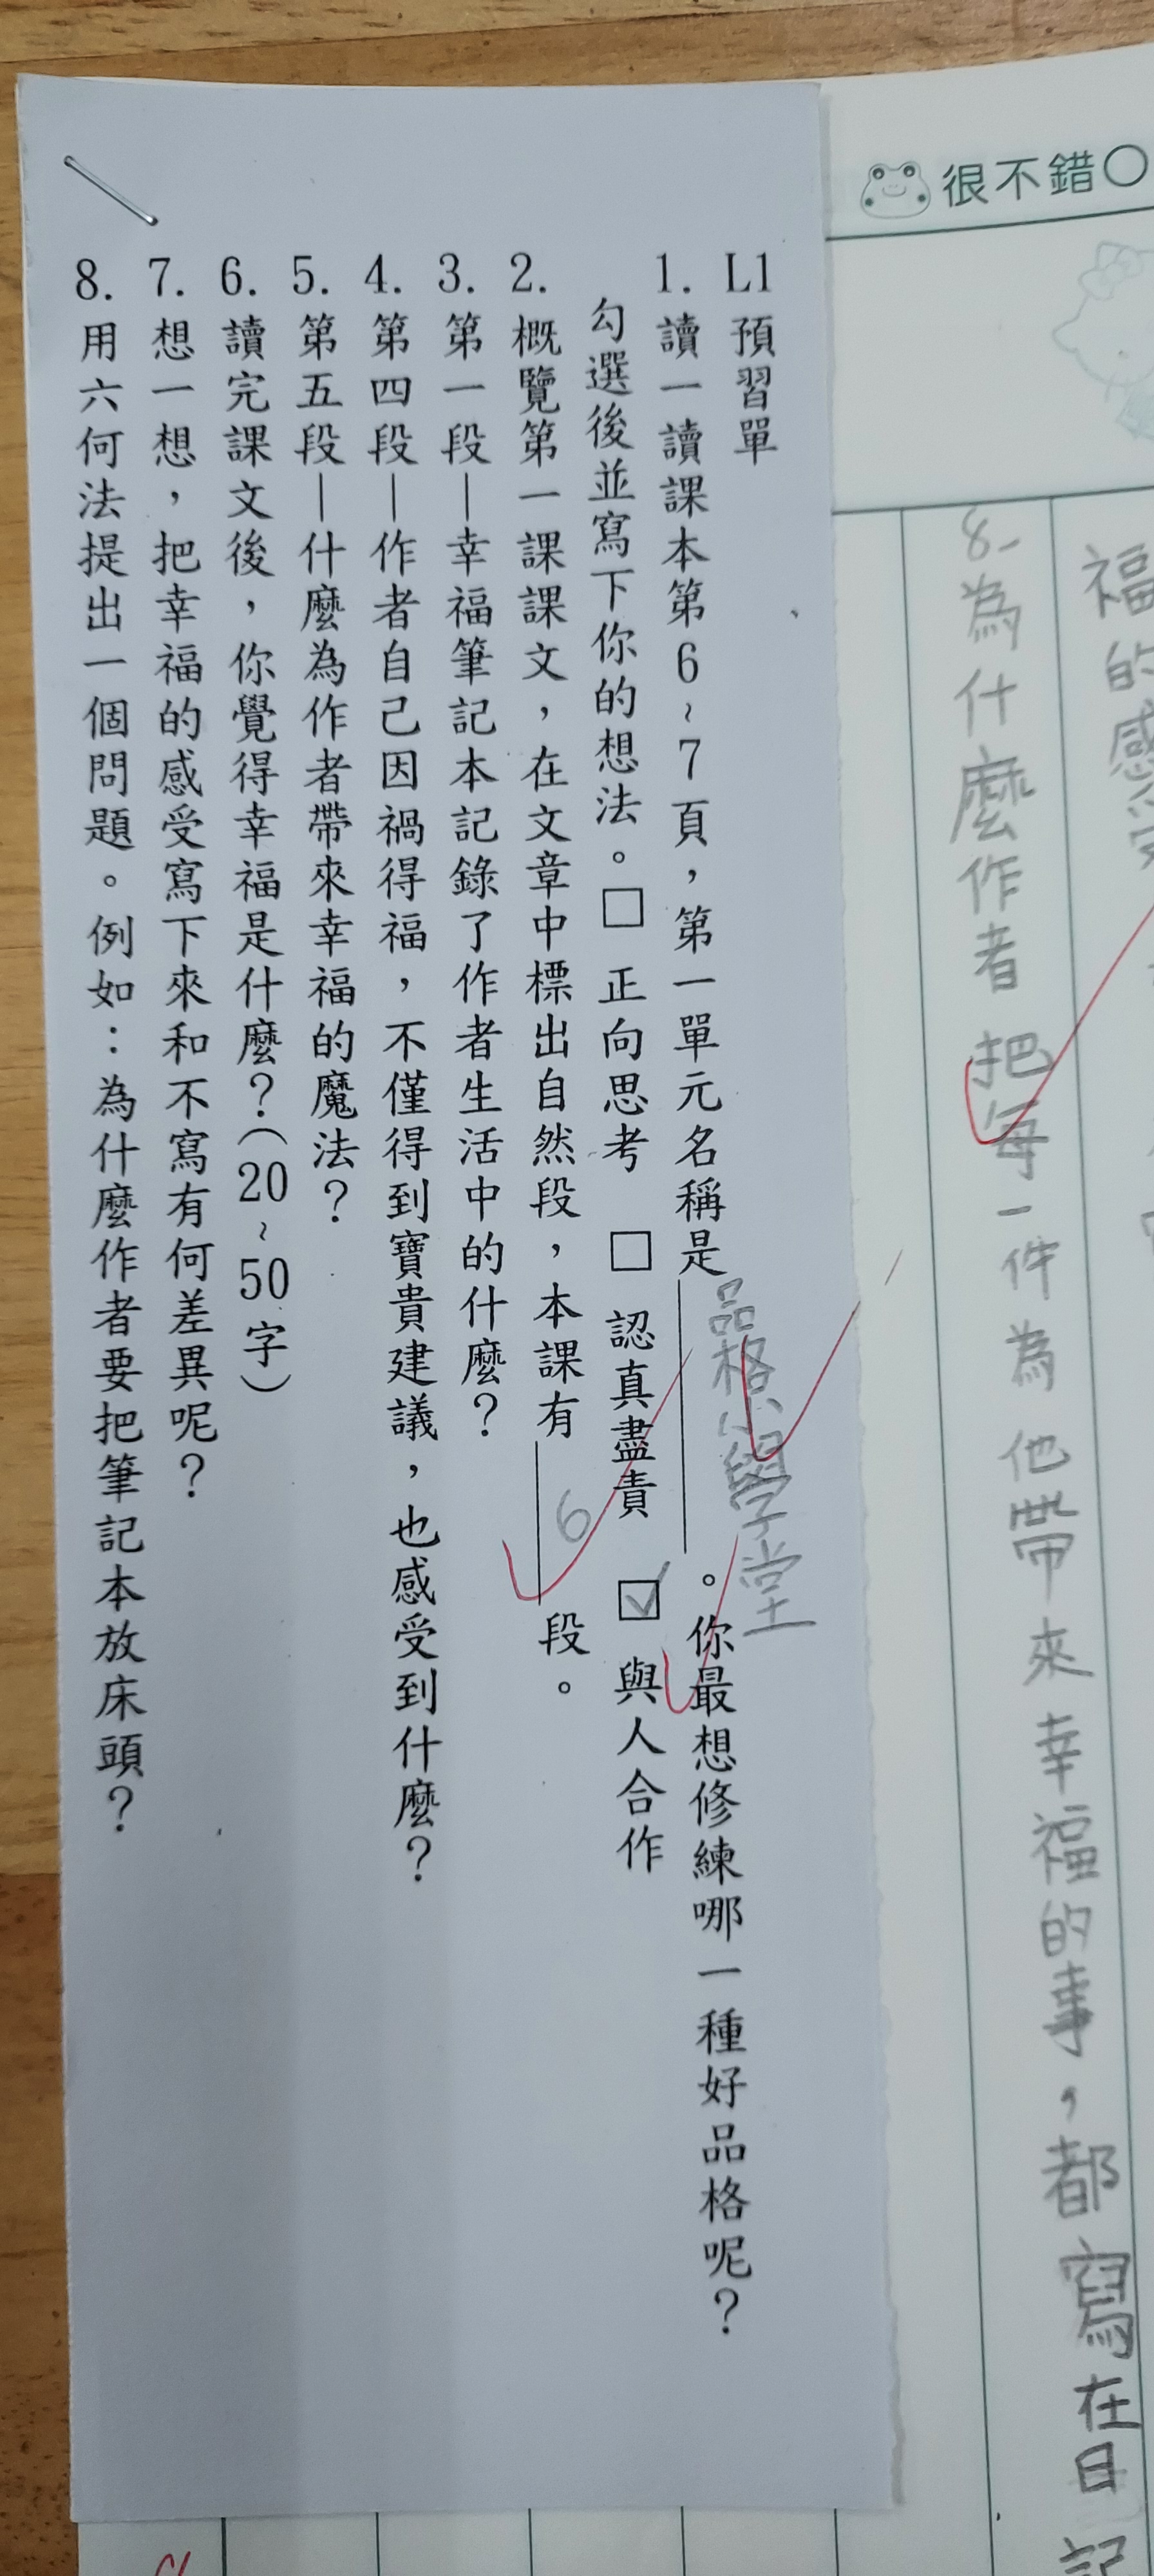 很不錯○
福的感受
8-為什麼作者把每一件為他帶來幸福的事，都寫在日記
L1預習單
1.讀一讀課本第6~7頁，第一單元名稱是品格小學堂。你最想修練哪一種好品格呢？
勾選後並寫下你的想法。□ 正向思考 □ 認真盡責 ☑ 與人合作
2.概覽第一課課文，在文章中標出自然段，本課有6段。
3.第一段—幸福筆記本記錄了作者生活中的什麼？
4.第四段—作者自己因禍得福，不僅得到寶貴建議，也感受到什麼？
5.第五段—什麼為作者帶來幸福的魔法？
6.讀完課文後，你覺得幸福是什麼？（20~50字）
7.想一想，把幸福的感受寫下來和不寫有何差異呢？
8.用六何法提出一個問題。例如：為什麼作者要把筆記本放床頭？